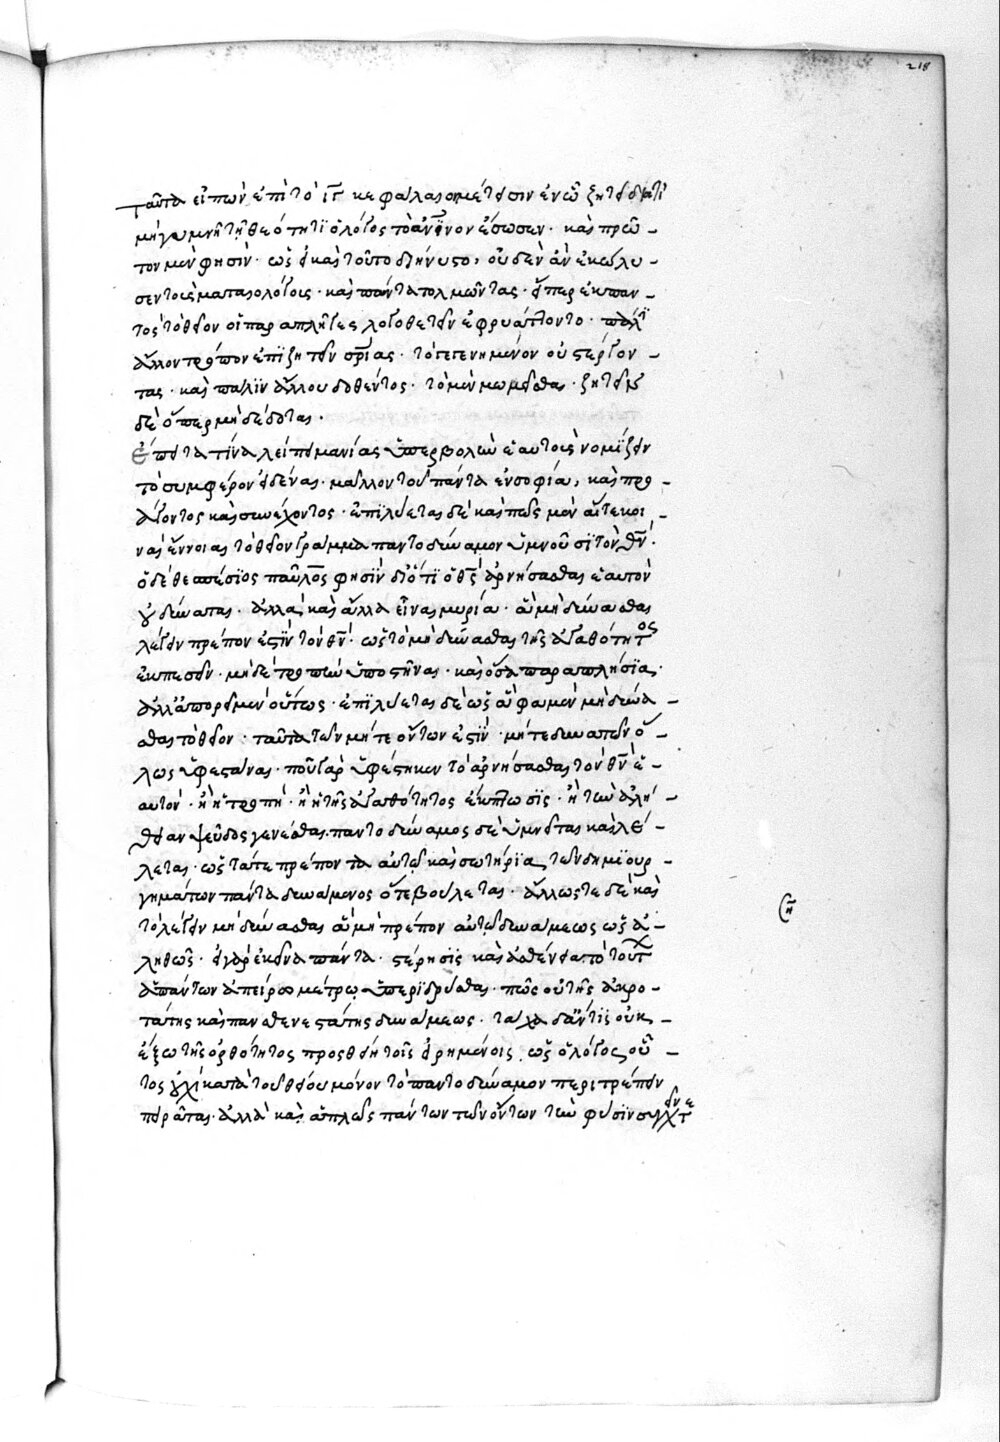 218
ταῦτα εἰπὼν ἐπὶ τὸ ιγ κεφάλαιον μέτεισιν ἐν ᾧ ζητεῖ διατί
μὴ γυμνῇ τῇ θεότητι ὁ λόγος τὸν ἄνον ἔσωσεν· καὶ πρῶ-
τον μέν φησιν· ὡς εἰ καὶ τοῦτο διήνυστο, οὐδὲν ἂν ἐκώλυ-
σεν τοὺς ματαιολόγους· καὶ πάντα τολμῶντας· εἴπερ ἐκ παν-
τὸς τὸ θεῖον οἱ παραπλῆγες λογοθετεῖν ἐφρυάττοντο· πάλιν
ἄλλον τρόπον ἐπιζητεῖν σριας· τὸ γεγενημένον οὐ στέργον-
τας· καὶ πάλιν ἄλλου δοθέντος· τὸ μὲν μωμεῖσθαι· ζητεῖν
δὲ ὅπερ μὴ δέδοται·
ἔπειτα τίνα λείπει μανίας ὑπερβολὴν ἑαυτοὺς νομίζειν
τὸ συμφέρον εἰδέναι· μᾶλλον τοῦ πάντα ἐν σοφίᾳ, καὶ προ-
άγοντος καὶ συνέχοντος· ἐπιλύεται δὲ καὶ πῶς μὲν αἵ τε κοι-
ναὶ ἔννοιαι τὸ θεῖον γράμμα παντοδύναμον ὑμνοῦσι τὸν θν·
ὁ δὲ θεσπέσιος παῦλος φησὶν διότι ὁ θς ἀρνήσασθαι ἑαυτὸν
οὐ δύναται· ἀλλὰ καὶ ἄλλα εἶναι μυρία· ἃ μὴ δύνασθαι
λέγειν πρέπον ἐστὶν τὸν θν· ὡς τὸ μὴ δύνασθαι τῆς ἀγαθότητος
ἐκπεσεῖν· μηδὲ τροπὴν ὑποστῆναι· καὶ ὅσα παραπλήσια·
ἀλλ᾽ ἀπορεῖ μὲν οὕτως· ἐπιλύεται δὲ ὡς ἃ φαμὲν μὴ δύνα-
σθαι τὸ θεῖον· ταῦτα τῶν μήτε ὄντων ἐστὶν· μήτε δυνατῶν ὅ-
λως ὑφεστάναι· ποῦ γὰρ ὑφέστηκεν τὸ ἀρνήσασθαι τὸν θν ἑ-
αυτόν· ἢ ἡ τροπή· ἢ ἡ τῆς ἀγαθότητος ἔκπτωσις· ἢ τὴν ἀλή-
θειαν ψεῦδος γενέσθαι. παντοδύναμος δὲ ὑμνεῖται καὶ λέ-
λεται· ὡς τά τε πρέποντα αὐτῷ καὶ σωτήρια τῶν δημιουρ-
γημάτων πάντα δυνάμενος ὅτε βούλεται· ἄλλως τε δὲ καὶ
τὸ λέγειν μὴ δύνασθαι ἃ μὴ πρέπον αὐτῷ δυνάμεως ὡς ἀ-
ληθῶς· εἰ γὰρ ἐκεῖνα πάντα· στέρησις καὶ ἀσθένεια τὸ τούτων
ἁπάντων ἀπείρῳ μέτρῳ ὑπεριδρύσθαι· πῶς οὐ τῆς ἀκρο-
τάτης καὶ πανσθενεστάτης δυνάμεως· τάχα δ᾽ ἄν τις οὐκ
ἔξω τῆς ὀρθότητος προσθείη τοῖς εἰρημένοις, ὡς ὁ λόγος οὗ-
τος οὐχὶ κατὰ τοῦ θείου μόνον τὸ παντοδύναμον περιτρέπειν
πειρᾶται· ἀλλὰ καὶ ἁπλῶς πάντων τῶν ὄντων τὴν φύσιν συγχεῖν τε